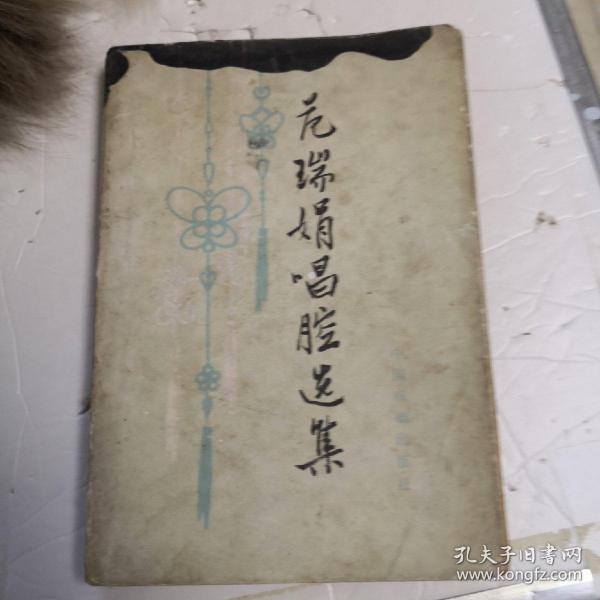 范瑞娟唱腔选集
孔夫子旧书网
www.kongfz.com